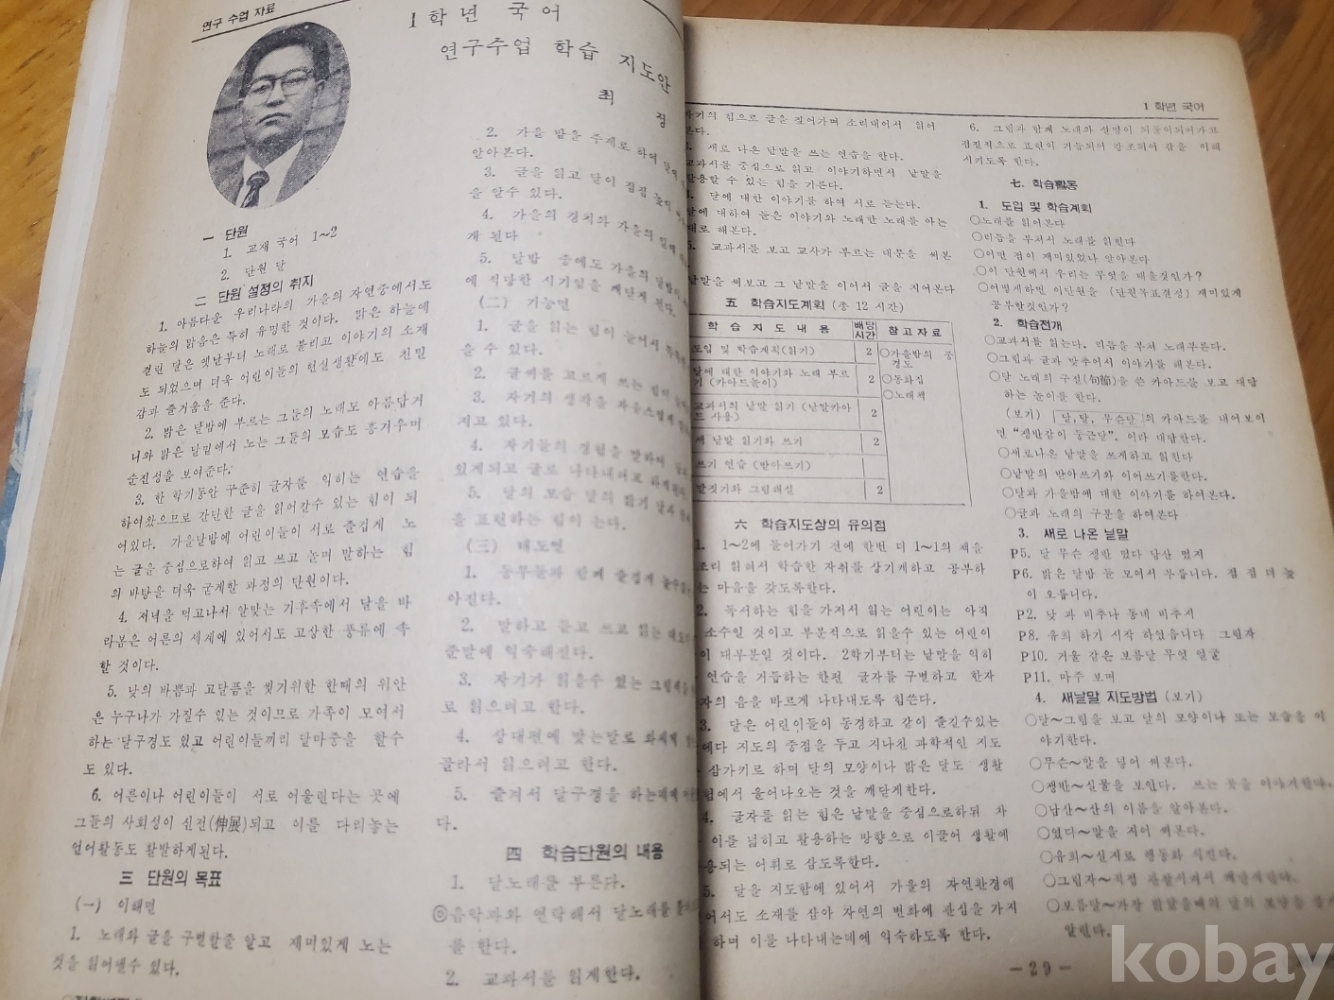 연구 수업 자료
1 학년 국어
연구수업 학습 지도안
최 정
一 단원
1. 교재 국어 1~2
2. 단원 달
二 단원 설정의 취지
1. 아름다운 우리나라의 가을의 자연중에서도
하늘의 맑음은 특히 유명한 것이다. 맑은 하늘에
걸린 달은 옛날부터 노래로 불리고 이야기의 소재
도 되었으며 더욱 어린이들의 현실생활에도 친밀
감과 즐거움을 준다.
2. 밝은 달밤에 부르는 그들의 노래도 아름답거
니와 밝은 달밑에서 노는 그들의 모습도 흥겨우며
순진성을 보여준다.
3. 한 학기동안 꾸준히 글자를 익히는 연습을
하여왔으므로 간단한 글을 읽어갈수 있는 힘이 되
어있다. 가을달밤에 어린이들이 서로 즐겁게 노
는 글을 중심으로하여 읽고 쓰고 놀며 말하는 힘
의 바탕을 더욱 굳게할 과정의 단원이다.
4. 저녁을 먹고나서 알맞는 기후속에서 달을 바
라봄은 어른의 세계에 있어서도 고상한 풍류에 속
할 것이다.
5. 낮의 바쁨과 고달픔을 씻기위한 한때의 위안
은 누구나가 가질수 있는 것이므로 가족이 모여서
하는 달구경도 있고 어린이들끼리 달마중을 할수
도 있다.
6. 어른이나 어린이들이 서로 어울린다는 곳에
그들의 사회성이 신전(伸展)되고 이를 다리놓는
언어활동도 활발하게된다.
三 단원의 목표
(一) 이해면
1. 노래와 글을 구별할줄 알고 재미있게 노는
것을 읽어낼수 있다.
2. 가을 밤을 주제로 하여
알아본다.
3. 글을 읽고 달이 점점 높이
을 알수 있다.
4. 가을의 경치와 가을의
게 된다
5. 달밤 중에도 가을의 달밤이
에 적당한 시기임을 깨닫게 된다.
(二) 기능면
1. 글을 읽는 힘이 늘어서
을 수 있다.
2. 글씨를 고르게 쓰는 힘이
3. 자기의 생각을 자유스럽게
지고 있다.
4. 자기들의 경험을 말하여
있게되고 글로 나타내려고 하게된다.
5. 달의 모습 달의 밝기
을 표현하는 힘이 는다.
(三) 태도면
1. 동무들과 함께 즐겁게
아진다.
2. 말하고 듣고 쓰고 읽는
준말에 익숙해진다.
3. 자기가 읽을수 있는 그림책을
로 읽으려고 한다.
4. 상대편에 맞는말로
골라서 읽으려고 한다.
5. 즐겨서 달구경을 하는데에
다.
四 학습단원의 내용
1. 달노래를 부른다.
◎음악과와 연락해서 달노래를
를 한다.
2. 교과서를 읽게한다.
1 학년 국어
자기의 힘으로 글을 짚어가며 소리내어서 읽어
본다.
새로 나온 낱말을 쓰는 연습을 한다.
교과서를 중심으로 읽고 이야기하면서 낱말을
활용할 수 있는 힘을 기른다.
달에 대한 이야기를 하여 서로 듣는다.
달에 대하여 들은 이야기와 노래한 노래를 아는
대로 해본다.
5. 교과서를 보고 교사가 부르는 대문을 써본
낱말을 써보고 그 낱말을 이어서 글을 지어본다
五 학습지도계획 (총 12 시간)
학 습 지 도 내 용 배당시간 참고자료
도입 및 학습계획(읽기) 2 ○가을밤의 풍경도
달에 대한 이야기와 노래 부르기 (카아드놀이) 2 ○동화집
○노래책
교과서의 낱말 읽기 (낱말카아드 사용) 2
새 낱말 읽기와 쓰기 2
쓰기 연습 (받아쓰기)
말짓기와 그림해설 2
六 학습지도상의 유의점
1. 1~2에 들어가기 전에 한번 더 1~1의 책을
모리 읽혀서 학습한 자취를 상기케하고 공부하
는 마음을 갖도록한다.
2. 독서하는 힘을 가져서 읽는 어린이는 아직
소수일 것이고 부분적으로 읽을수 있는 어린이
이 대부분일 것이다. 2학기부터는 낱말을 익히
연습을 거듭하는 한편 글자를 구별하고 한자
자의 음을 바르게 나타내도록 힘쓴다.
3. 달은 어린이들이 동경하고 같이 즐길수있는
에다 지도의 중점을 두고 지나친 과학적인 지도
삼가키로 하며 달의 모양이나 밝은 달도 생활
험에서 울어나오는 것을 깨닫게한다.
4. 글자를 읽는 힘은 낱말을 중심으로하되 차
이를 넓히고 활용하는 방향으로 이끌어 생활에
용되는 어휘로 삼도록한다.
5. 달을 지도함에 있어서 가을의 자연환경에
어서도 소재를 삼아 자연의 변화에 관심을 가지
하며 이를 나타내는데에 익숙하도록 한다.
6. 그림과 함께 노래와 설명이 되풀이되어가고
점점적으로 표현이 거듭되어 강조되어 감을 이해
시키도록 한다.
七 학습활동
1. 도입 및 학습계획
○노래를 읽어본다
○리듬을 부쳐서 노래를 읽힌다
○어떤 점이 재미있었나 알아본다
○이 단원에서 우리는 무엇을 배울것인가?
○어떻게하면 이단원을 (단원목표결정) 재미있게
공부할것인가?
2. 학습전개
○교과서를 읽는다. 리듬을 부쳐 노래부른다.
○그림과 글과 맞추어서 이야기를 해본다.
○달 노래의 구절(句節)을 쓴 카아드를 보고 대답
하는 놀이를 한다.
(보기) 달, 달, 무슨달 의 카아드를 내어보이
면 "쟁반같이 둥근달". 이라 대답한다.
○새로나온 낱말을 쓰게하고 읽힌다
○낱말의 받아쓰기와 이어쓰기를한다.
○달과 가을밤에 대한 이야기를 하여본다.
○글과 노래의 구분을 하여본다
3. 새로 나온 낱말
P5. 달 무슨 쟁반 떴다 남산 떴지
P6. 밝은 달밤 들 모여서 부릅니다. 점 점 더 높
이 오릅니다.
P2. 낮 과 비추나 동네 비추지
P8. 유희 하기 시작 하였습니다 그림자
P10. 거울 같은 보름달 무엇 얼굴
P11. 마주 보며
4. 새낱말 지도방법 (보기)
○달~그림을 보고 달의 모양이나 또는 모습을 이
야기한다.
○무슨~말을 넣어 써본다.
○쟁반~실물을 보인다. 쓰는 곳을 이야기한다.
○남산~산의 이름을 알아본다.
○떴다~말을 지어 써본다.
○유희~실지로 행동화 시킨다.
○그림자~직접 관찰시켜서 깨닫게한다.
○보름달~가장 밝았을때의 달의 모양을
알린다.
—29—
kobay